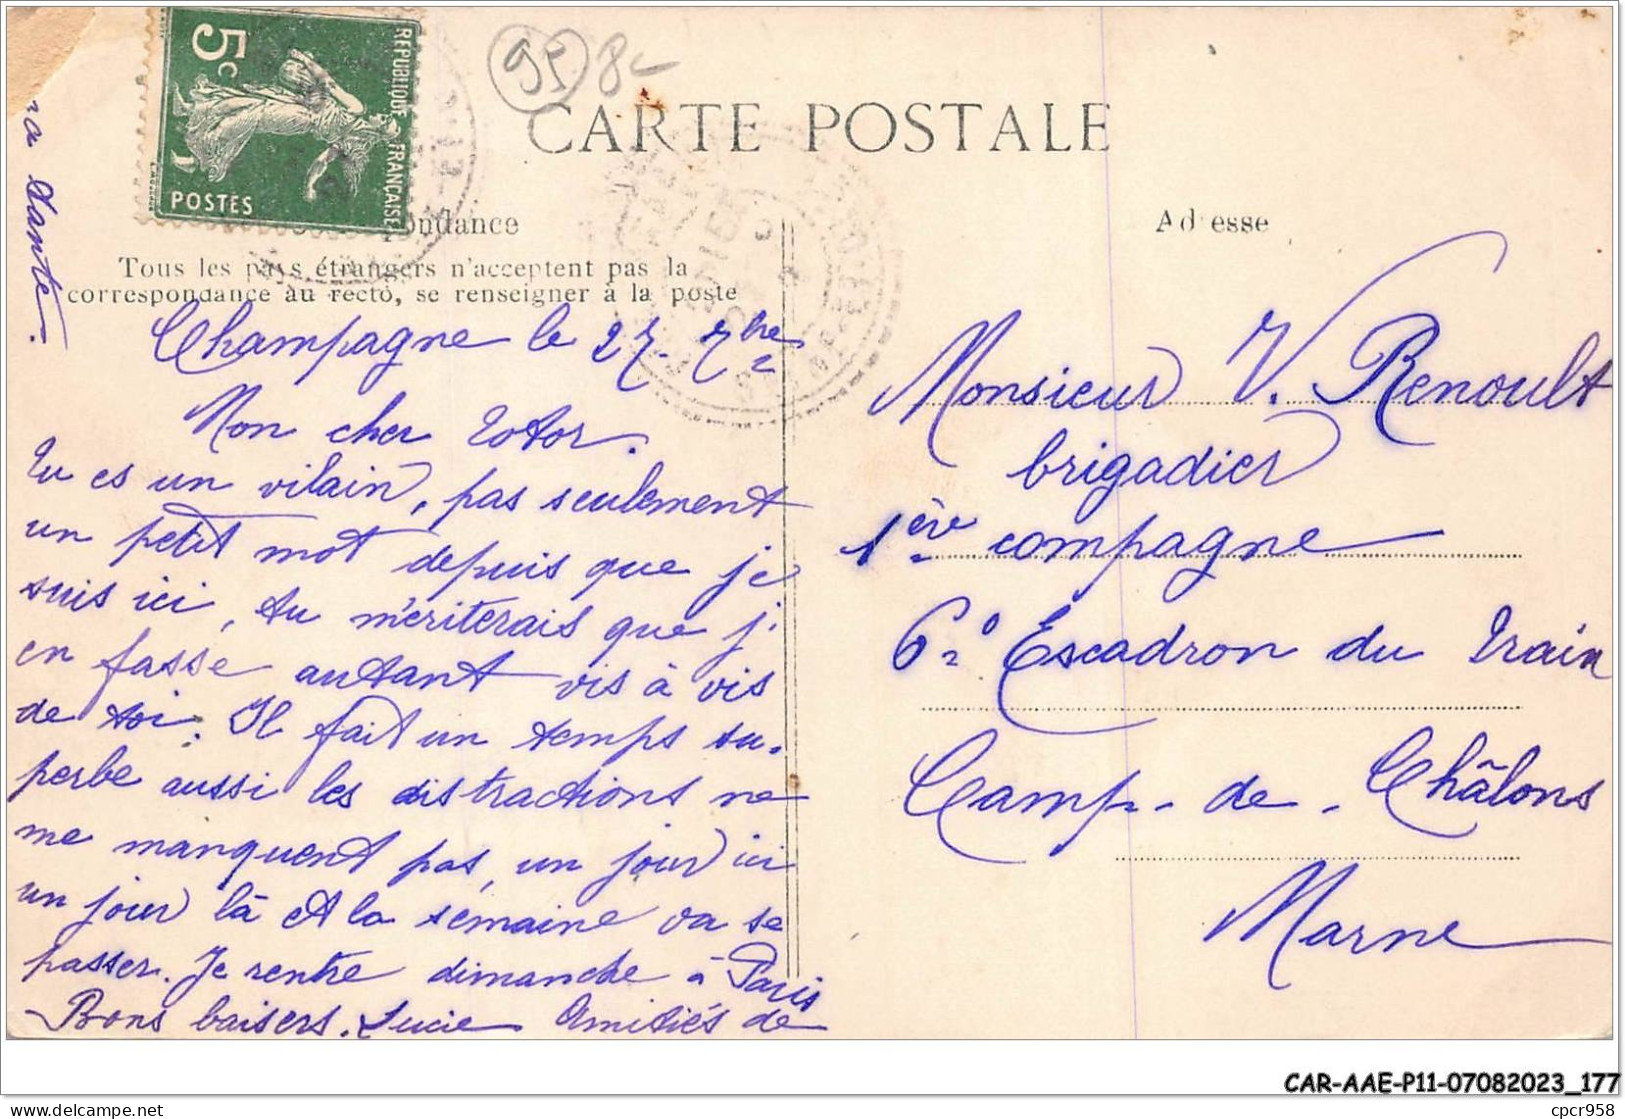 95 8c
5c
REPUBLIQUE FRANÇAISE
POSTES
CARTE POSTALE
pondance
Adresse
Tous les pays étrangers n'acceptent pas la
correspondance au recto, se renseigner à la poste
Champagne le 27. 7bre
Mon cher Totor.
Tu es un vilain, pas seulement
un petit mot depuis que je
suis ici, tu mériterais que j'
en fasse autant vis à vis
de toi. Il fait un temps su-
perbe aussi les distractions ne
me manquent pas, un jour ici
un jour là et la semaine va se
passer. Je rentre dimanche à Paris
Bons baisers. Lucie Amitiés de
Tante.
Monsieur V. Renoult
brigadier
1ère compagne
6e Escadron du Train
Camp-de-Châlons
Marne
CAR-AAE-P11-07082023_177
delcampe.net
cpcr958